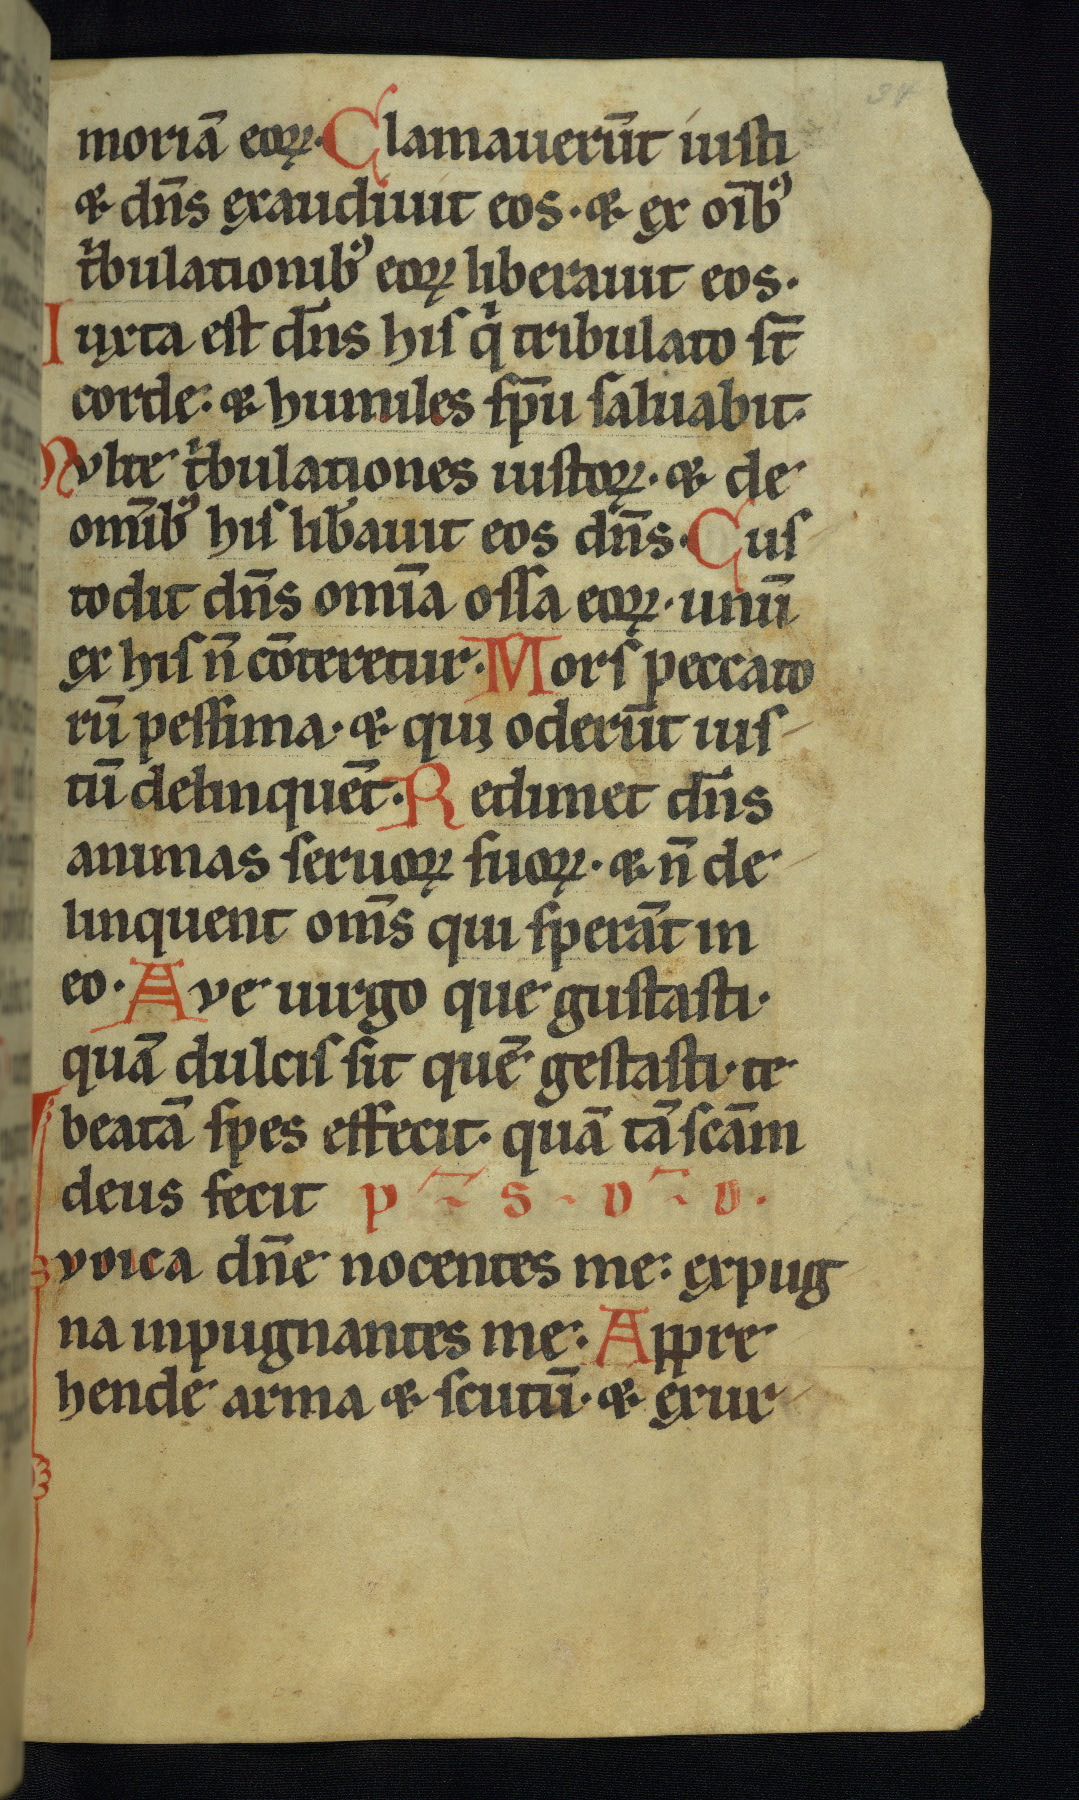 34
moriā eoꝝ· Clamauerūt iusti
⁊ dn̄s exaudiuit eos· ⁊ ex oīb᾽
tͥbulationib᾽ eoꝝ liberauit eos·
Iuxta est dn̄s hiſ qͥ tribulato ſt̄
corde: ⁊ humiles ſpū ſaluabit·
Mvlte tͥbulationes iustoꝝ· ⁊ de
om̄ib᾽ hiſ lib̾auit eos dn̄s· Cuſ
todit dn̄s om̄ia oſſa eoꝝ· unū
ex hiſ n̄ cōteretur· Morſ peccato
rū peſſima· ⁊ qui oderūt iuſ
tū delinquēt· Redimet dn̄s
animas ſeruoꝝ ſuoꝝ· ⁊ n̄ de
linquent om̄s qui ſperāt in
eo· Ave uirgo que gustasti·
quā dulciſ ſit quē gestasti· te
beatā ſpes effecit· quā tā ſcām
deus fecit p s v v·
Ivdica dn̄e nocentes me: expug
na inpugnantes me: Appre
hende arma ⁊ scutū· ⁊ exur